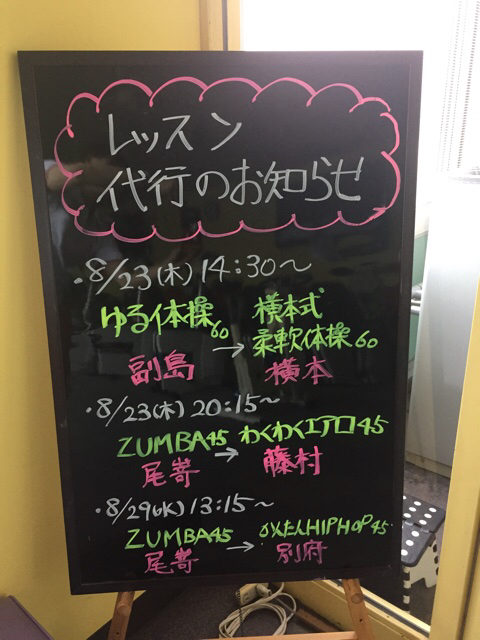 レッスン
代行のお知らせ
・8/23(木)14:30〜
ゆる体操60 → 横本式
柔軟体操60
副島 横本
・8/23(木)20:15〜
ZUMBA45 → わくわくエアロ45
尾嵜 藤村
・8/29(水)13:15〜
ZUMBA45 → かんたんHIPHOP45
尾嵜 別府